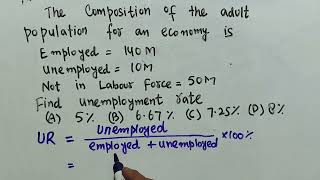 The Composition of the adult
population for an economy is
Employed = 140 M
Unemployed = 10M
Not in Labour Force = 50M
Find unemployment rate
(A) 5% (B) 6.67% (C) 7.25% (D) 8%
UR = Unemployed / employed + unemployed × 100%
=